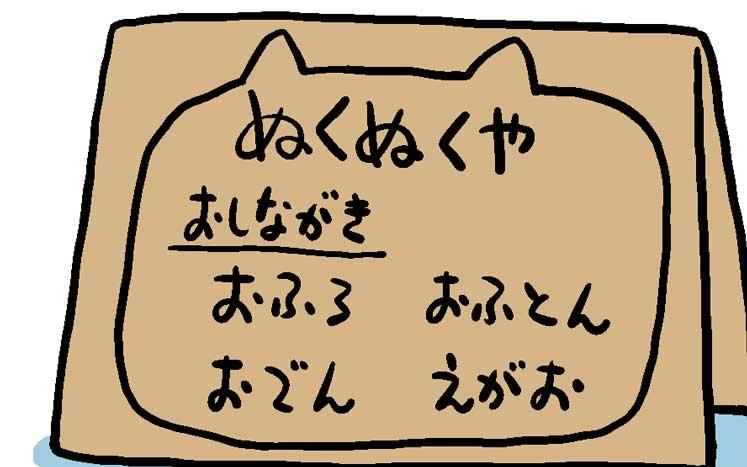 ぬくぬくや
おしながき
おふろ おふとん
おでん えがお